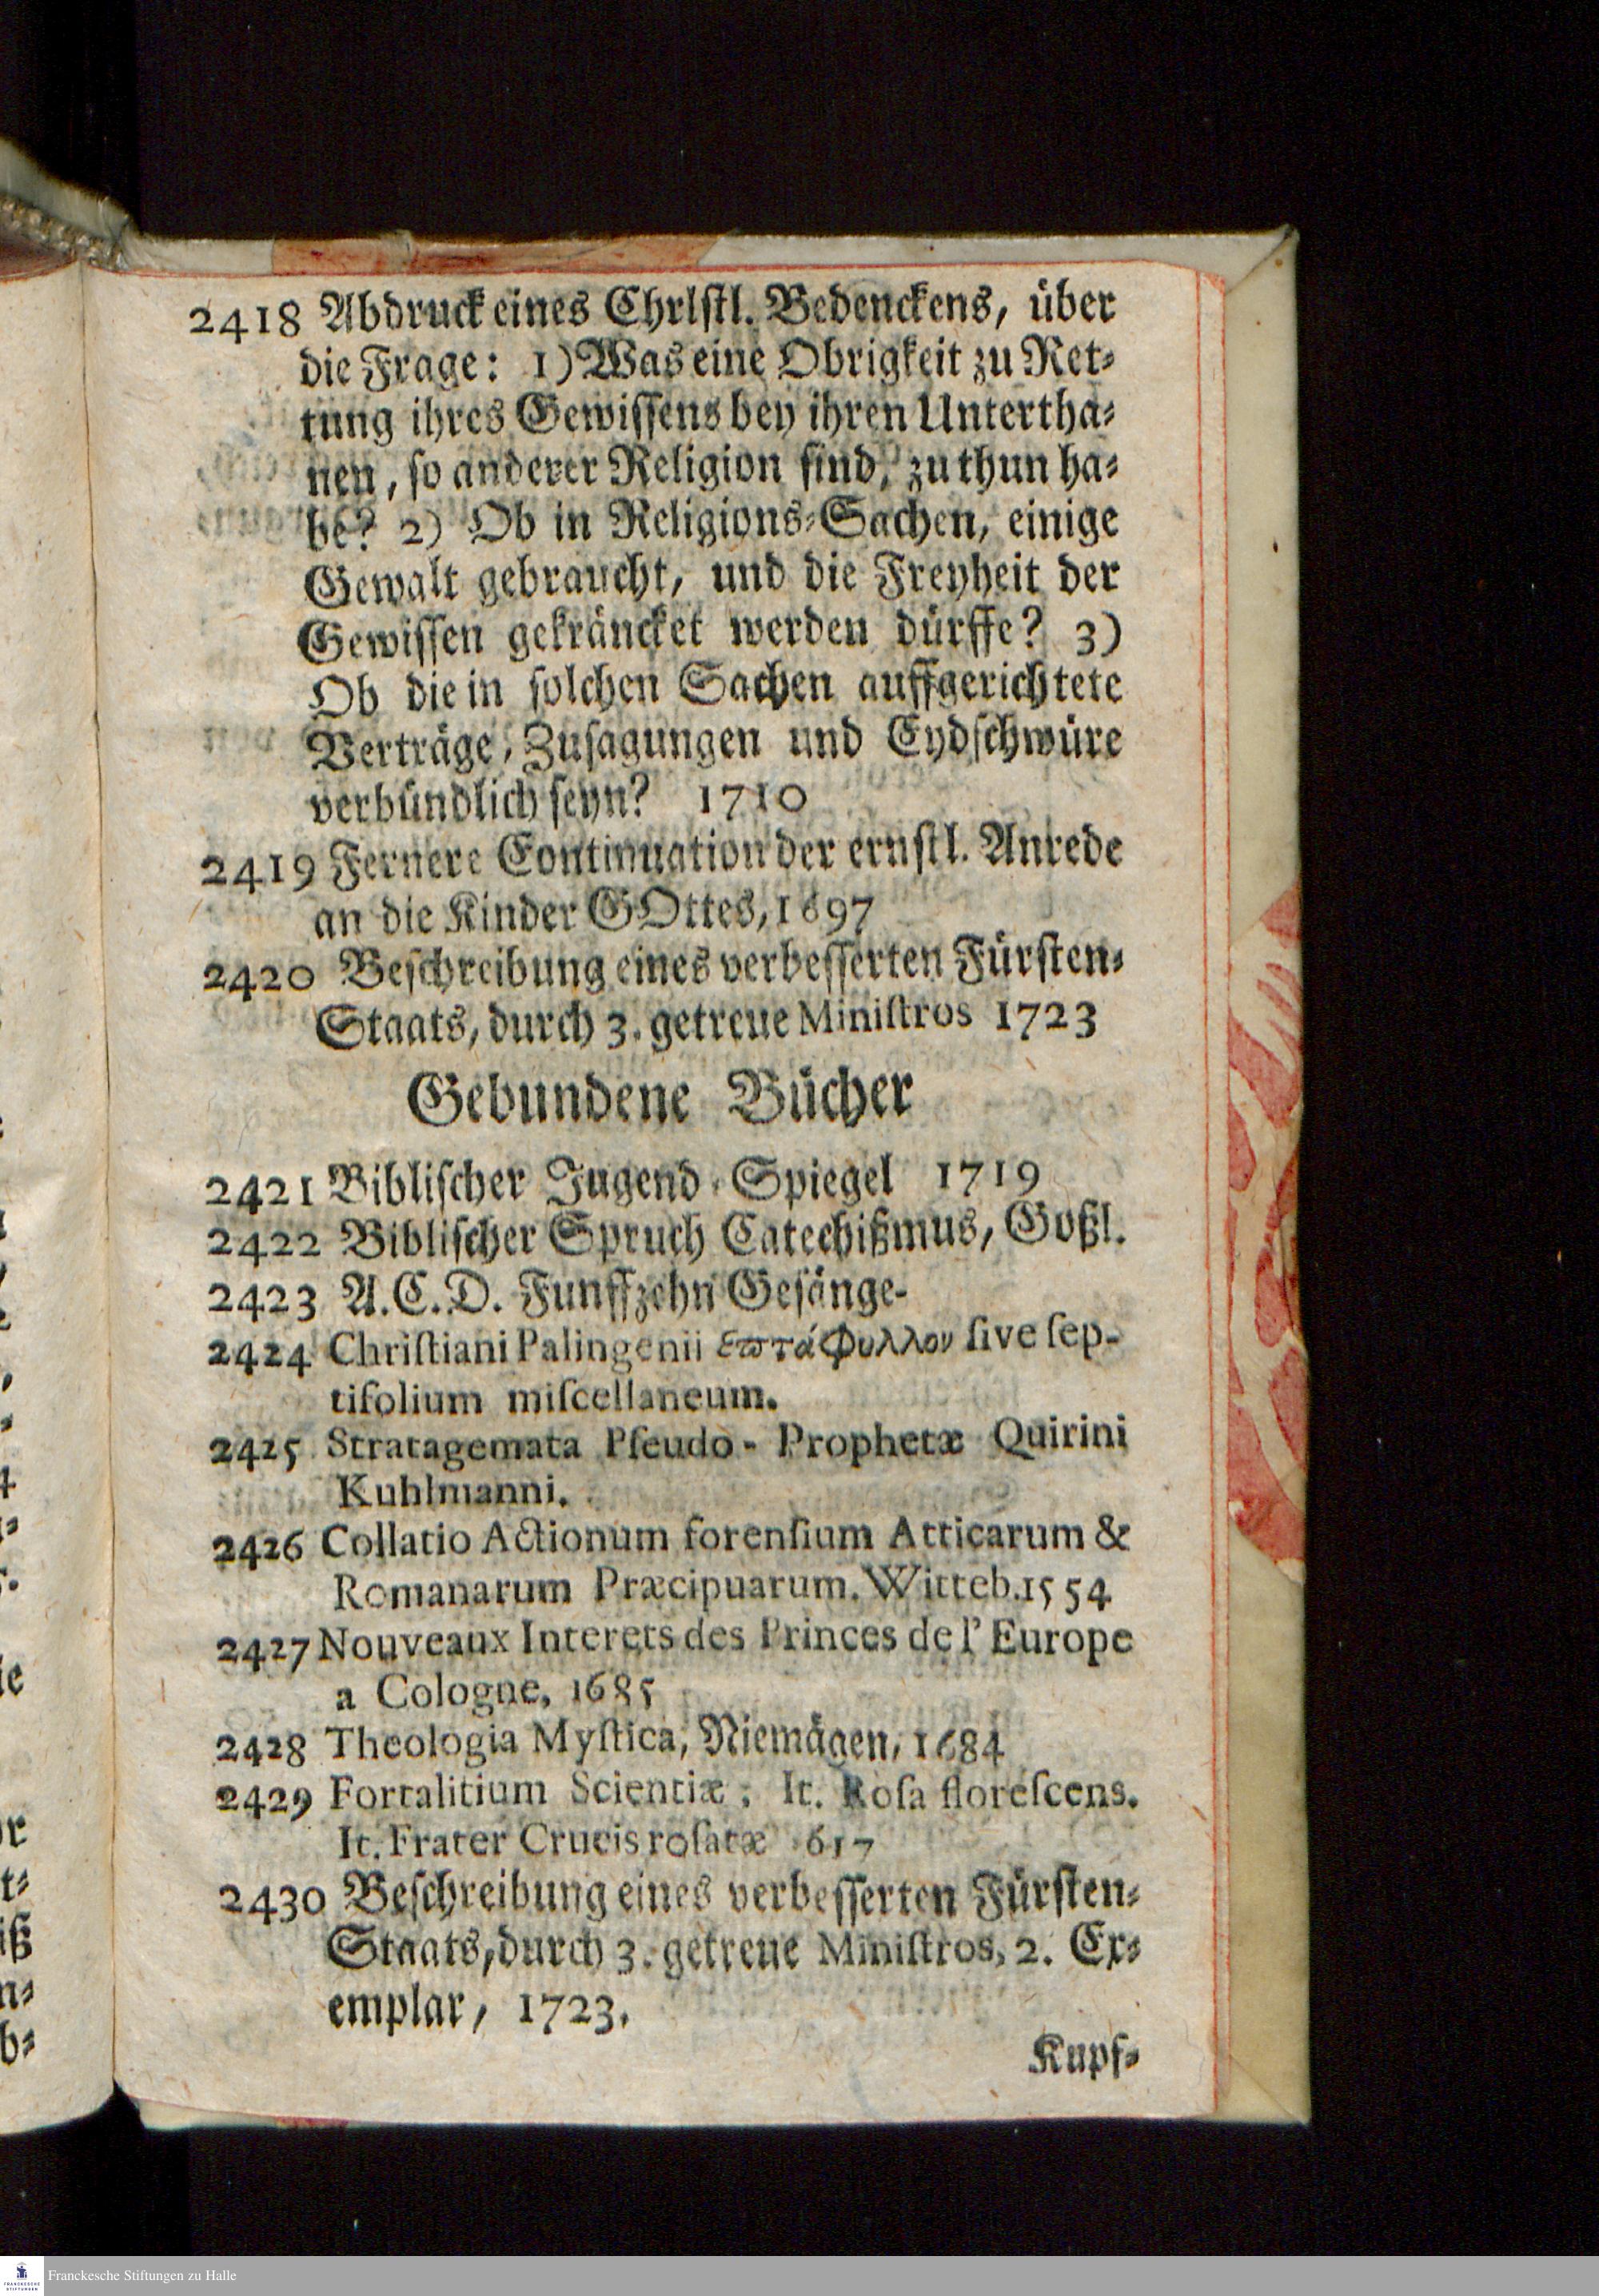 2418 Abdruck eines Chrlſtl. Bedenckens, über
die Frage: 1) Was eine Obrigkeit zu Ret⸗
tung ihres Gewiſſens bey ihren Untertha⸗
nen, ſo anderer Religion ſind, zu thun ha⸗
be? 2) Ob in Religions⸗Sachen, einige
Gewalt gebraucht, und die Freyheit der
Gewiſſen gekräncket werden dürffe? 3)
Ob die in ſolchen Sachen auffgerichtete
Verträge, Zuſagungen und Eydſchwüre
verbündlich ſeyn? 1710
2419 Fernere Continuation der ernſtl. Anrede
an die Kinder GOttes, 1697
2420 Beſchreibung eines verbeſſerten Fürſten⸗
Staats, durch 3. getreue Miniſtros 1723
Gebundene Bücher
2421 Bibliſcher Jugend⸗Spiegel 1719
2422 Bibliſcher Spruch Catechißmus, Goßl.
2423 A. C. D. Funffzehn Geſänge-
2424 Chriſtiani Palingenii ἑϖτάφυλλον ſive ſep-
tifolium miſcellaneum.
2425 Stratagemata Pſeudo-Prophetæ Quirini
Kuhlmanni.
2426 Collatio Actionum forenſium Atticarum &
Romanarum Præcipuarum. Witteb. 1554
2427 Nouveaux Interets des Princes de l' Europe
a Cologne, 1685
2428 Theologia Myſtica, Niemägen, 1684
2429 Fortalitium Scientiæ; It. Roſa floreſcens.
It. Frater Crucis roſatæ 617
2430 Beſchreibung eines verbeſſerten Fürſten⸗
Staats, durch 3. getreue Miniſtros, 2. Ex⸗
emplar, 1723.
Kupf⸗
Franckesche Stiftungen zu Halle